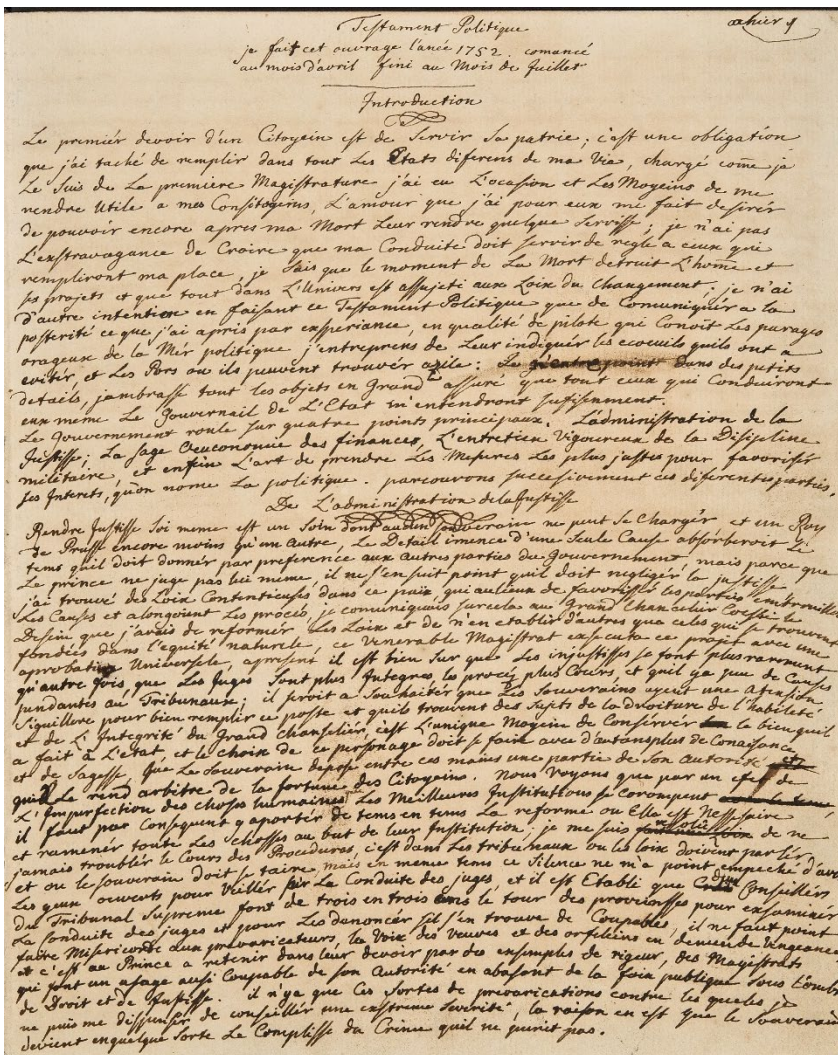 Testament Politique
cahier 1
je fait cet ouvrage l'anée 1752. comancé
au mois d'avril fini au Mois de Juillet
Introduction
Le premiér devoir d'un Citoyein est de Servir Sa patrie; c'ast une obligation
que j'ai taché de remplir dans tout Les Etats diferens de ma Vie, chargé come je
Le Suis de La premiere Magistrature j'ai eu L'ocasion et Les Moyeins de me
rendre Utile a mes Consitoyeins, L'amour que j'ai pour eux me fait desirér
de pouvoir encore apres ma Mort Leur rendre quelque Servisse; je n'ai pas
L'exstravagance de Croire que ma Conduite doit servir de regle a ceux qui
rempliront ma place, je Sais que le moment de La Mort detruit L'home et
ses projets et que tout dans L'Univers est assujeti aux Loix du changement. je n'ai
d'autre intention en faisant ce Testament Politique que de Comuniquér a la
posterité ce que j'ai apris par experiance, en qualité de pilote qui Conoit Les parages
orageux de la Mér politique j'entreprens de Leur indiquer les ecoeuils quils ont a
evitér, et Les Pors ou ils peuvent trouvér azile: Je n'entre point dans des petits
details, jambrasse tout les objets en Grand assuré que tout ceux qui Conduiront
eux meme Le Gouvernail de L'Etat m'entendront sufisenment.
Le Gouvernement roule sur quatre points principaux. L'administration de la
Justisse; La sage Oeuconomie des finances, L'entretien Vigoureux de la Disipline
militaire, et enfein L'art de prendre Les Mesures Les plus justes pour favorisér
ses Interets, qu'on nome La politique. parcourons successivement ces diferentes parties
De L'administration de la Justisse
Rendre Justisse Soi meme est un Soin dont aucun Souverain ne peut se Chargér et un Roy
de Prusse encore moins qu'un autre, Le Detail imence d'une Seule Cause absorberoit Le
tems quil doit donnér par preference aux autres parties du Gouvernement mais parce que
Le prince ne juge pas lui meme, il ne s'en suit point quil doit negligér la justisse
j'ai trouvé des Loix Contentieuses dans ce païx, qui aulieu de favorissér les parties embrouillet
Les Causes et alongoient Les procés, je comuniquais surcela au Grand Chancelier Coccei le
Dessin que j'avais de reformér Les Loix et de n'en etablir d'autres que celes qui se trouvent
fondées dans l'equité naturele, ce Venerable Magistrat executa ce projet avec une
aprobation Universele, apresent il est bien Sur que Les injustisses se font plus rarement
qu'autre fois, que Les Juges Sont plus Integres, les procés plus Cours, et quil ya peu de Causes
pendantes au Tribunaux; il seroit a Souhaitér que Les Souverains ayent une Atension
Siguillere pour bien remplir ce poste et quils trouvent des Sujets de la droiture de l'habileté
et de L'Integrité du Grand Chanseliér, c'est L'unique Moyein de Conservér le bien quil
a fait à L'etat, et le choix de ce personage doit se faire avec d'autansplus de Conaisance
et de Sagesse, que Le Souverain depose entre ces mains une partie de Son Autorité
quil Le rend arbitre de la fortune des Citoyeins. Nous Voyons que par un efet de
L'Imperfection des choses humaines Les Meilleures Institutions se corompent
il faut par Consequent y aportér de tems en tems La reforme ou Elle est Nessesaire
et ramenér toute Les choses au but de leur Institution; je me suis de ne
jamais troublér le Cours des Procedures, c'est dans Les tribunaux ou les loix doivent parlér
et ou le souverain doit se taire, mais en meme tems ce Silence ne m'a point empeché d'avoir
Les yeux ouverts pour Veillér sur La Conduite des juges, et il est Etabli que Conseillérs
du Tribunal Supreme font de trois en trois ans le tour des provienses pour examinér
La conduite des juges et pour Les denoncér sil s'en trouve de Coupables, il ne faut point
faire Misericorde aux prevaricateurs, la Voix des Veuves et des orfeleins en demende Vengeance
et c'est au Prince a retenir dans leur devoir par des exsemples de rigeur, des Magistrats
qui font un usage ausi Coupable de son Autorité en abusant de la foix publique sous L'ombre
de Droit et de Justisse. il n'ya que Ces Sortes de prevarications contre les queles je
ne puis me dispenser de conseillér une exstreme Severité, la raison en est que le Souverain
devient enquelque Sorte Le Complisse du Crime quil ne punit pas.